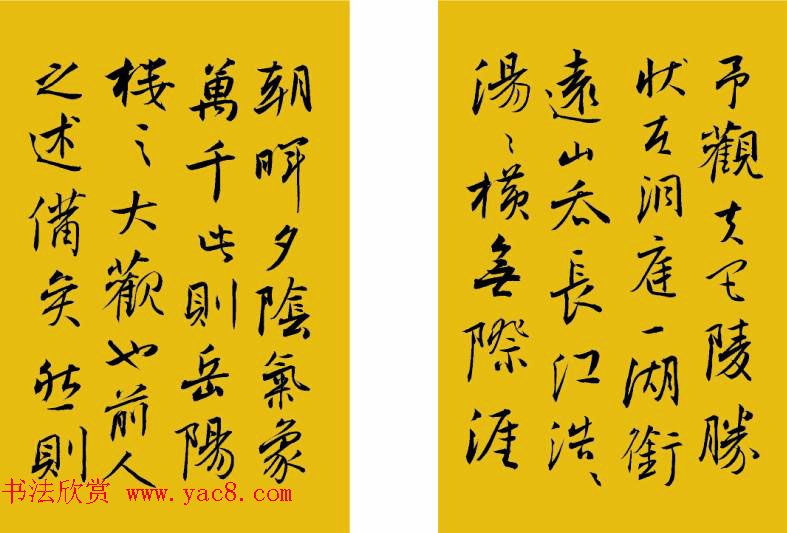 予觀夫巴陵勝
状在洞庭一湖銜
遠山吞長江浩〻
湯〻橫無際涯
朝暉夕陰氣象
萬千此則岳陽
楼之大觀也前人
之述備矣然則
书法欣赏 www.yac8.com